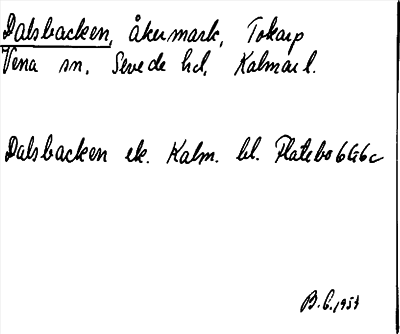 Dalsbacken, åkermark, Tokarp
Vena sn. Sevede hd. Kalmar l.
Dalsbacken ek. Kalm. bl. Flatebo 6G6c
B.G. 1954